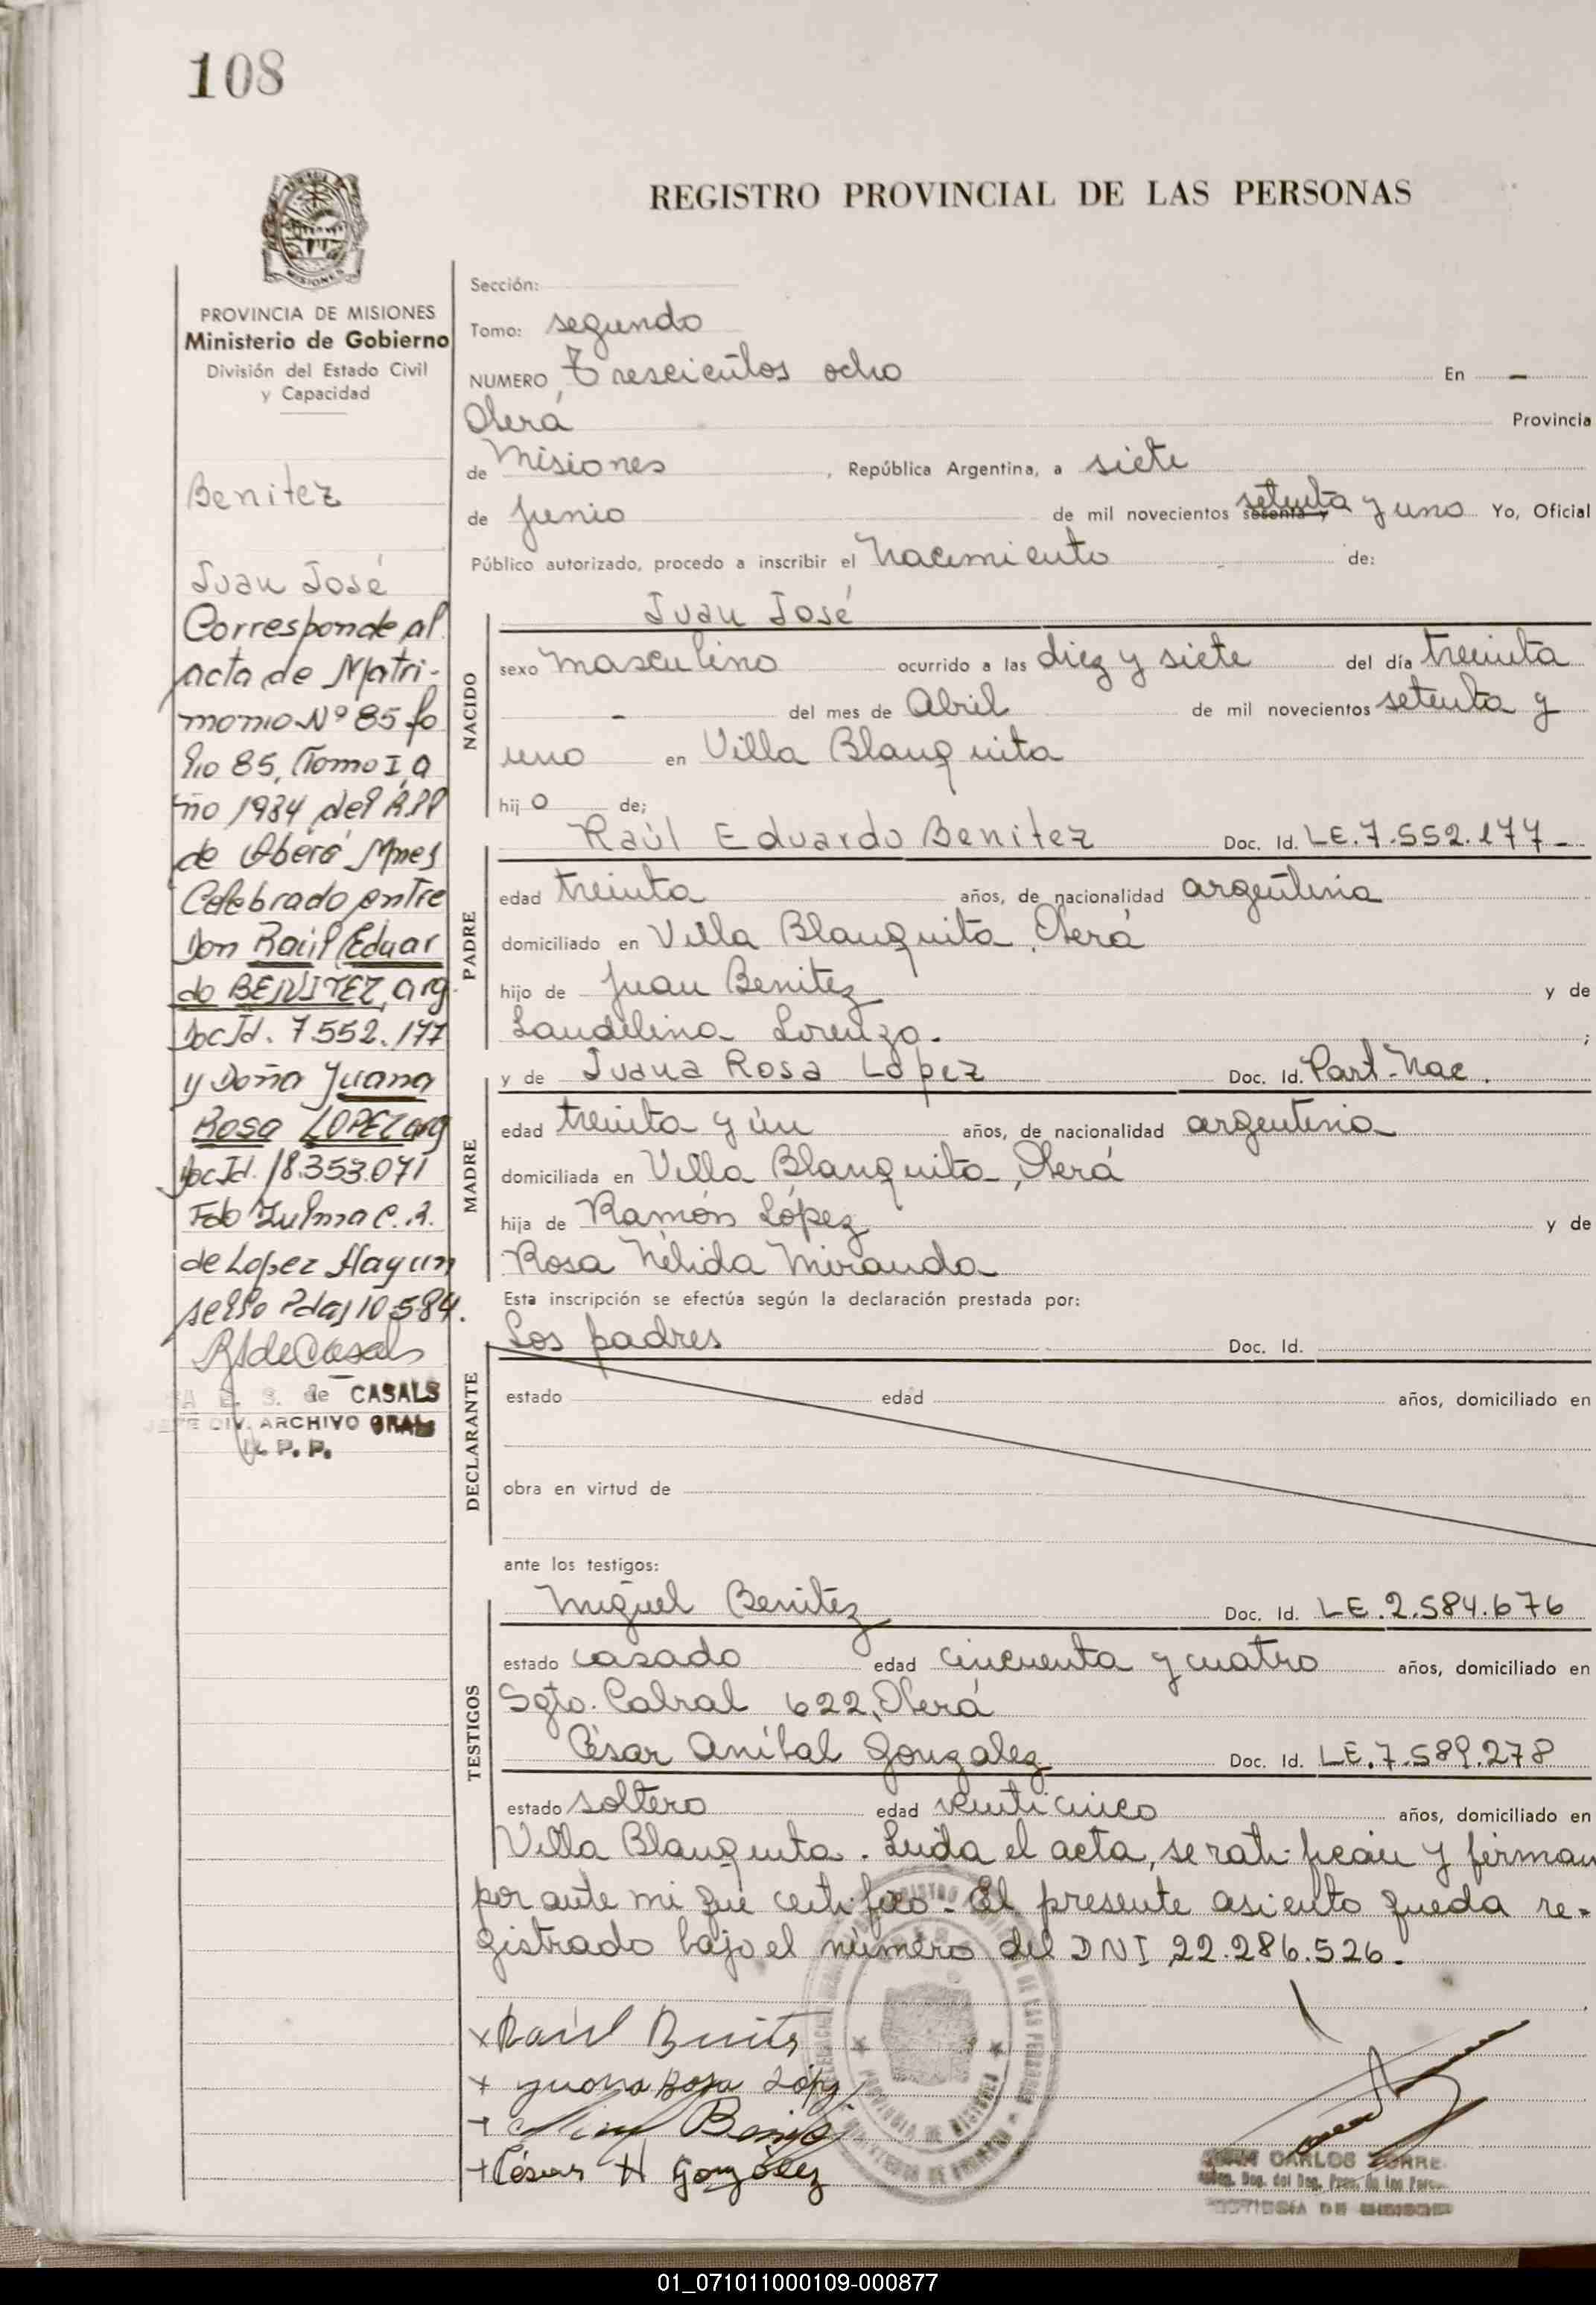 108
REGISTRO PROVINCIAL DE LAS PERSONAS
MISIONES
PROVINCIA DE MISIONES
Ministerio de Gobierno
División del Estado Civil
y Capacidad
Benitez
Juan José
Corresponde al
acta de Matri-
monio Nº 85 fo
lio 85, Tomo I, a
ño 1984 del R.P.P
de Oberá Mnes
Celebrado entre
Don Raúl Eduar
do BENITEZ, arg.
Doc Id. 7.552.177
y Doña Juana
Rosa LOPEZ arg
Doc Id. 18.353.071
Fdo Zulma C. R.
de Lopez Hay un
sello Pdas 10-5-84.
RSdeCasals
E. S. de CASALS
DIV. ARCHIVO GRAL
R. P. P.
Sección:
Tomo: segundo
NUMERO Trescientos ocho En -
Oberá Provincia
de Misiones, República Argentina, a siete
de Junio de mil novecientos sesenta y setenta y uno Yo, Oficial
Público autorizado, procedo a inscribir el Nacimiento de:
NACIDO
Juan José
sexo masculino ocurrido a las diez y siete del día treinta
- del mes de Abril de mil novecientos setenta y
uno en Villa Blanquita
hijo de;
PADRE
Raúl Eduardo Benitez Doc. Id. LE.7.552.177-
edad treinta años, de nacionalidad argentina
domiciliado en Villa Blanquita, Oberá
hijo de Juan Benitez y de
Laudelina Lorenzo. ;
MADRE
y de Juana Rosa López Doc. Id. Part-Nac.
edad treinta y ún años, de nacionalidad argentina
domiciliada en Villa Blanquita, Oberá
hija de Ramón López y de
Rosa Nélida Miranda
Esta inscripción se efectúa según la declaración prestada por:
DECLARANTE
Los padres Doc. Id.
estado edad años, domiciliado en
obra en virtud de
ante los testigos:
TESTIGOS
Miguel Benitez Doc. Id. LE.2.584.676
estado casado edad cincuenta y cuatro años, domiciliado en
Sgto. Cabral 622, Oberá
César Aníbal Gonzalez Doc. Id. LE.7.589.278
estado soltero edad veinticinco años, domiciliado en
Villa Blanquita. Leída el acta, se ratifican y firman
por ante mi que certifico - El presente asiento queda re-
gistrado bajo el número del DNI 22.286.526.
PROVINCIA DE MISIONES
x Raúl Benitez
+ Juana Rosa López
+ Benitez
+ César A Gonzalez
JUAN CARLOS TORRE
PROVINCIA DE MISIONES
01_071011000109-000877